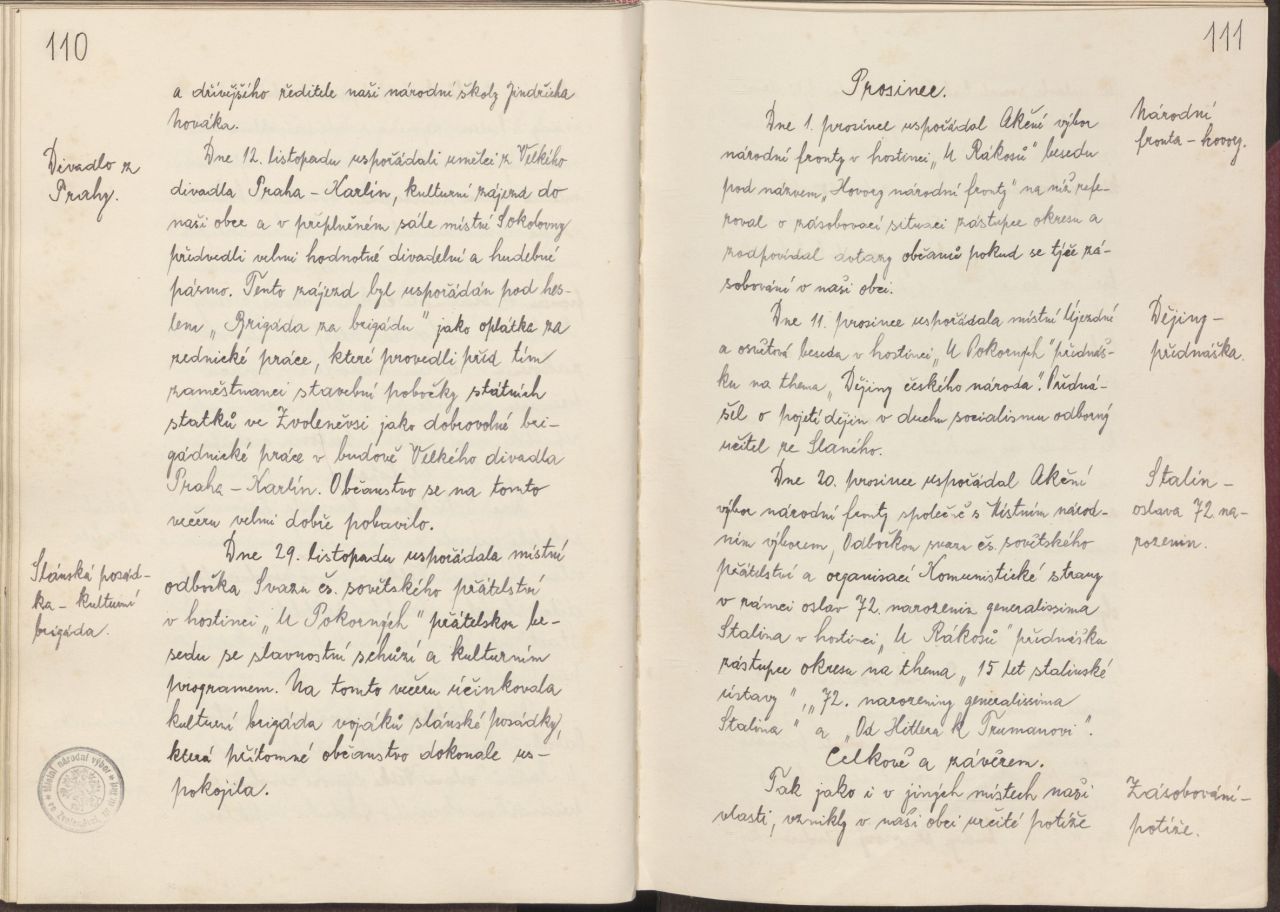 110
a dřívějšího ředitele naší národní školy Jindřicha
Nováka.
Divadlo z
Prahy.
Dne 12. listopadu uspořádali umělci z Velkého
divadla Praha – Karlín, kulturní zájezd do
naší obce a v přeplněném sále místní Sokolovny
předvedli velmi hodnotné divadelní a hudebné
pásmo. Tento zájezd byl uspořádán pod hes-
lem „Brigáda za brigádu" jako oplátka za
zednické práce, které provedli před tím
zaměstnanci stavební pobočky státních
statků ve Zvoleněvsi jako dobrovolné bri-
gádnické práce v budově Velkého divadla
Praha – Karlín. Občanstvo se na tomto
večeru velmi dobře pobavilo.
Slánská posád-
ka – kulturní
brigáda.
Dne 29. listopadu uspořádala místní
odbočka Svazu čs. sovětského přátelství
v hostinci „U Pokorných" přátelskou be-
sedu se slavnostní schůzí a kulturním
programem. Na tomto večeru účinkovala
kulturní brigáda vojáků slánské posádky,
která přítomné občanstvo dokonale us-
pokojila.
místní národní výbor
111
Prosinec.
Národní
fronta – hovory.
Dne 1. prosince uspořádal Akční výbor
národní fronty v hostinci „U Rákosů" besedu
pod názvem „Hovory národní fronty" na níž refe-
roval o zásobovací situaci zástupce okresu a
zodpovídal dotazy občanů pokud se týče zá-
sobování v naší obci.
Dějiny –
přednáška.
Dne 11. prosince uspořádala místní Újezdní
a osvětová beseda v hostinci „U Pokorných" přednáš-
ku na thema „Dějiny českého národa". Předná-
šel o pojetí dějin v duchu socialismu odborný
učitel ze Slaného.
Stalin –
oslava 72 na-
rozenin.
Dne 20. prosince uspořádal Akční
výbor národní fronty společně s Místním národ-
ním výborem, Odbočkou svazu čs. sovětského
přátelství a organisací Komunistické strany
v rámci oslav 72. narozenin generalissima
Stalina v hostinci „U Rákosů" přednášku
zástupce okresu na thema „15 let stalinské
ústavy", „72. narozeniny generalissima
Stalina" a „Od Hitlera k Trumanovi".
Celkově a závěrem.
Zásobování –
potíže.
Tak jako i v jiných místech naší
vlasti, vznikly v naší obci určité potíže